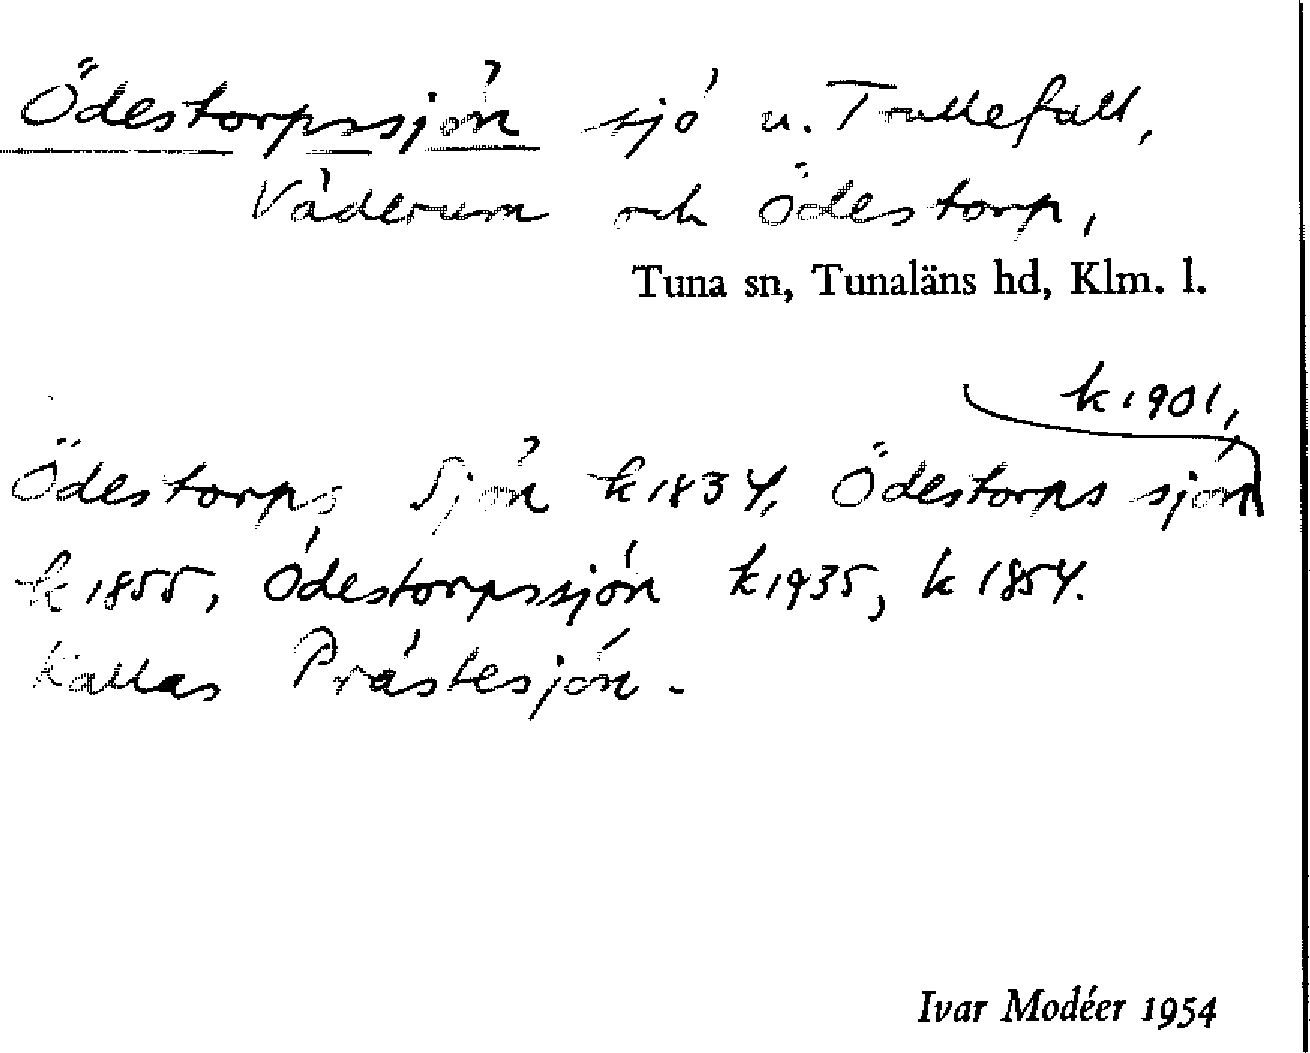 Ödestorpssjön sjö u. Trullefall,
Väderum och Ödestorp,
Tuna sn, Tunaläns hd, Klm. l.
k 1901,
Ödestorps Sjön k 1834, Ödestorps sjön
k 1855, Ödestorpssjön k 1935, k 1854.
Kallas Prästesjön.
Ivar Modéer 1954